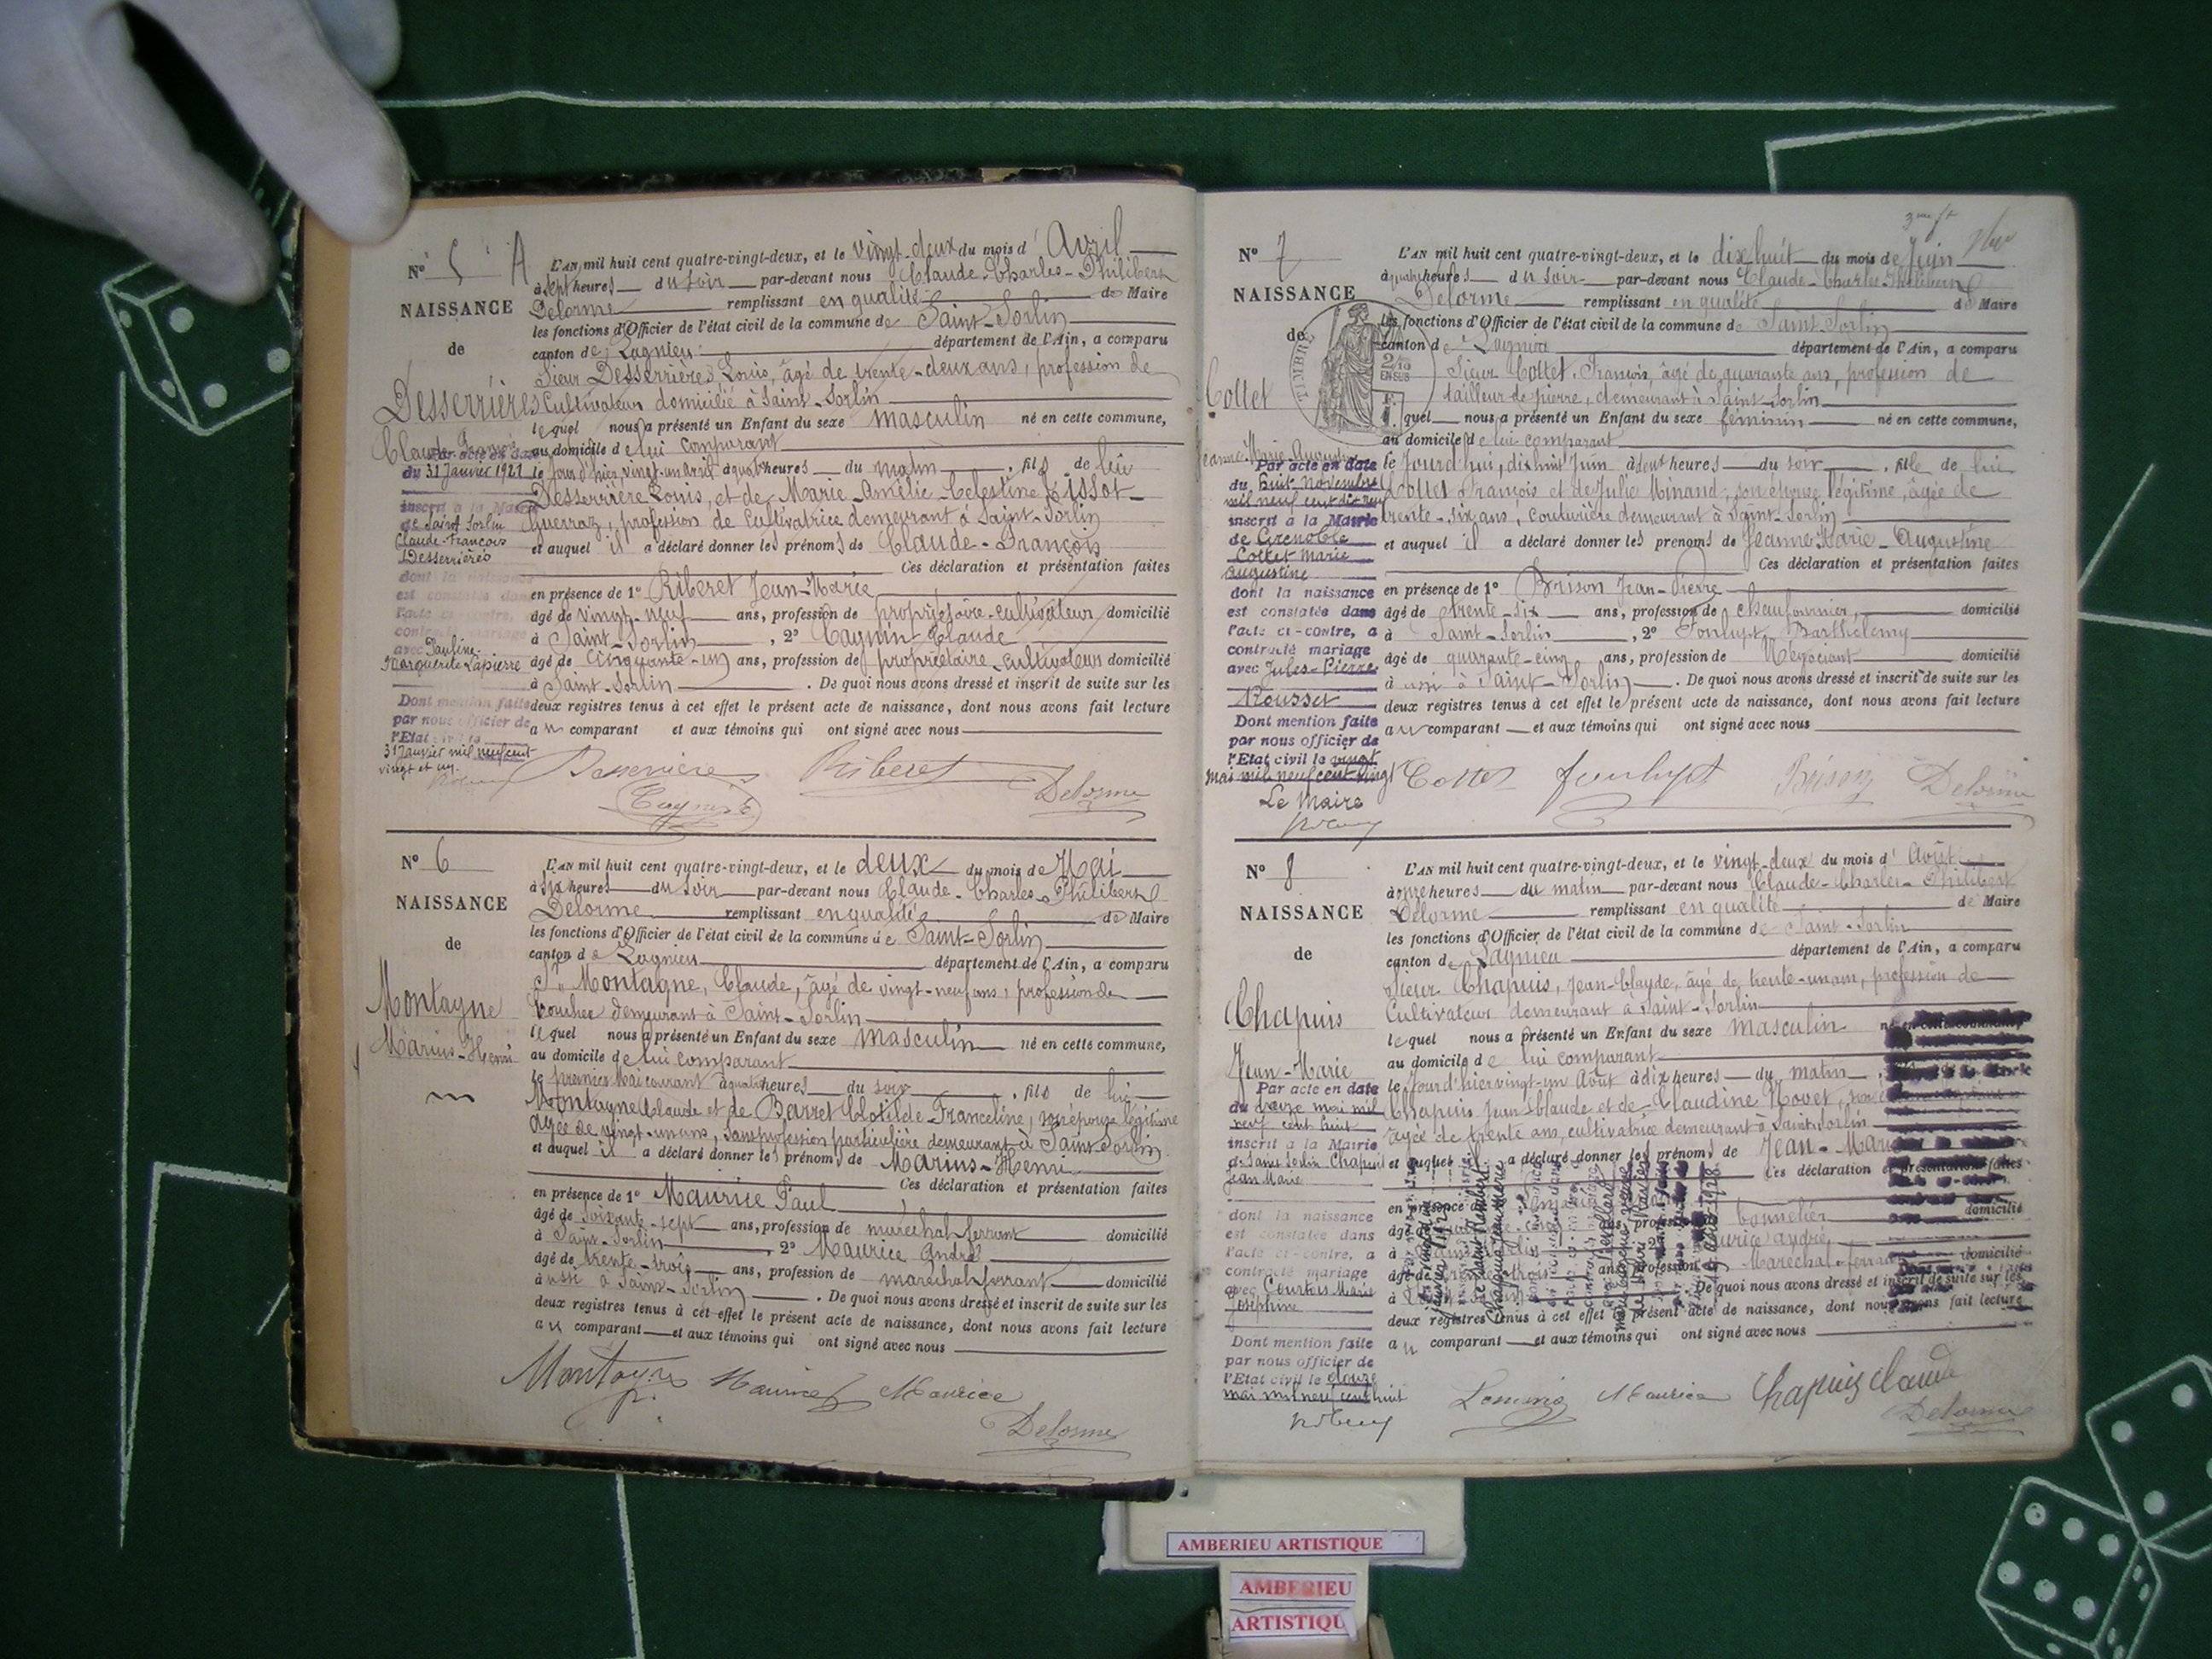 N° 5 A
NAISSANCE
de
Desserrières
Claude François
du 31 Janvier 1921
inscrit à la Mairie
de Saint Sorlin
Claude-François
Desserrières
dont la naissance
est constatée dans
l'acte ci-contre,
contracté mariage
avec Pauline
Marguerite Lapierre
Dont mention faite
par nous officier de
l'Etat civil le
31 Janvier mil neuf cent
vingt et un
L'AN mil huit cent quatre-vingt-deux, et le vingt-deux du mois d'Avril
à sept heures du soir par-devant nous Claude-Charles-Philibert
Delorme remplissant en qualité de Maire
les fonctions d'Officier de l'état civil de la commune de Saint-Sorlin
canton de Lagnieu département de l'Ain, a comparu
Sieur Desserrières Louis, âgé de trente-deux ans, profession de
Cultivateur domicilié à Saint-Sorlin
lequel nous a présenté un Enfant du sexe masculin né en cette commune,
au domicile de lui comparant
le jour d'hier, vingt-un avril à heures du matin, fils de lui
Desserrière Louis, et de Marie-Amélie-Celestine
Guerraz, profession de Cultivatrice demeurant à Saint-Sorlin
et auquel il a déclaré donner les prénoms de Claude-François
Ces déclaration et présentation faites
en présence de 1° Riberet Jean-Marie
âgé de vingt-neuf ans, profession de propriétaire-cultivateur domicilié
à Saint-Sorlin, 2° Cagnin Claude
âgé de cinquante-un ans, profession de propriétaire-cultivateur domicilié
à Saint-Sorlin. De quoi nous avons dressé et inscrit de suite sur les
deux registres tenus à cet effet le présent acte de naissance, dont nous avons fait lecture
au comparant et aux témoins qui ont signé avec nous
Desserrière Riberet
Cagnin Delorme
N° 6
NAISSANCE
de
Montagne
Marius-Henri
L'AN mil huit cent quatre-vingt-deux, et le deux du mois de Mai
à six heures du soir par-devant nous Claude-Charles-Philibert
Delorme remplissant en qualité de Maire
les fonctions d'Officier de l'état civil de la commune de Saint-Sorlin
canton de Lagnieu département de l'Ain, a comparu
Sr Montagne, Claude, âgé de vingt-neuf ans, profession de
boucher demeurant à Saint-Sorlin
lequel nous a présenté un Enfant du sexe masculin né en cette commune,
au domicile de lui comparant
le premier Mai courant à quatre heures du soir, fils de lui
Montagne Claude et de Barret Clotilde-Franceline, son épouse légitime
âgée de vingt-un ans, sans profession particulière demeurant à Saint-Sorlin
et auquel il a déclaré donner les prénoms de Marius-Henri
Ces déclaration et présentation faites
en présence de 1° Maurice Paul
âgé de soixante-sept ans, profession de maréchal-ferrant domicilié
à Saint-Sorlin, 2° Maurice André
âgé de trente-trois ans, profession de maréchal-ferrant domicilié
aussi à Saint-Sorlin. De quoi nous avons dressé et inscrit de suite sur les
deux registres tenus à cet effet le présent acte de naissance, dont nous avons fait lecture
au comparant et aux témoins qui ont signé avec nous
Montagne Maurice Maurice
Delorme
N° 7
NAISSANCE
de
TIMBRE
Cottet
Jeanne-Marie-Augustine
Par acte en date
du huit Novembre
mil neuf cent dix neuf
inscrit à la Mairie
de Grenoble
Cottet Marie
Augustine
dont la naissance
est constatée dans
l'acte ci-contre, a
contracté mariage
avec Jules-Pierre
Rousset
Dont mention faite
par nous officier de
l'Etat civil le vingt
mai mil neuf cent vingt
Le Maire
L'AN mil huit cent quatre-vingt-deux, et le dix huit du mois de Juin
à quatre heures du soir par-devant nous Claude-Charles-Philibert
Delorme remplissant en qualité de Maire
les fonctions d'Officier de l'état civil de la commune de Saint-Sorlin
canton de Lagnieu département de l'Ain, a comparu
Sieur Cottet François, âgé de quarante ans, profession de
tailleur de pierre, demeurant à Saint-Sorlin
lequel nous a présenté un Enfant du sexe féminin né en cette commune,
au domicile de lui comparant
le Jourd'hui, dix huit Juin à heures du soir, fille de lui
Cottet François et de Julie Minand, son épouse légitime, âgée de
trente-six ans, couturière demeurant à Saint-Sorlin
et auquel il a déclaré donner les prénoms de Jeanne-Marie-Augustine
Ces déclaration et présentation faites
en présence de 1° Brison Jean-Pierre
âgé de trente-six ans, profession de chaufournier, domicilié
à Saint-Sorlin, 2° Barthélemy
âgé de quarante-cinq ans, profession de Négociant domicilié
aussi à Saint-Sorlin. De quoi nous avons dressé et inscrit de suite sur les
deux registres tenus à cet effet le présent acte de naissance, dont nous avons fait lecture
au comparant et aux témoins qui ont signé avec nous
Cottet Brison Delorme
N° 8
NAISSANCE
de
Chapuis
Jean-Marie
Par acte en date
du treize mai mil
neuf cent huit
inscrit à la Mairie
de Saint Sorlin Chapuis
Jean Marie
dont la naissance
est constatée dans
l'acte ci-contre, a
contracté mariage
avec Courtois Marie
Joséphine
Dont mention faite
par nous officier de
l'Etat civil le
mai mil neuf cent huit
L'AN mil huit cent quatre-vingt-deux, et le vingt-deux du mois d'Août
à onze heures du matin par-devant nous Claude-Charles-Philibert
Delorme remplissant en qualité de Maire
les fonctions d'Officier de l'état civil de la commune de Saint-Sorlin
canton de Lagnieu département de l'Ain, a comparu
Sieur Chapuis, Jean-Claude, âgé de trente-un ans, profession de
Cultivateur demeurant à Saint-Sorlin
lequel nous a présenté un Enfant du sexe masculin
au domicile de lui comparant
le Jour d'hier vingt-un Août à dix heures du matin
Chapuis Jean Claude et de Claudine Novet
âgée de trente ans, cultivatrice demeurant à Saint-Sorlin
et auquel a déclaré donner les prénoms de Jean-Marie
Ces déclaration et présentation faites
en présence
tonnelier domicilié
Maurice André
Maréchal-ferrant domicilié
De quoi nous avons dressé et inscrit de suite sur les
deux registres tenus à cet effet le présent acte de naissance, dont nous avons fait lecture
au comparant et aux témoins qui ont signé avec nous
Maurice Chapuis Claude
Delorme
AMBERIEU ARTISTIQUE
AMBERIEU
ARTISTIQU